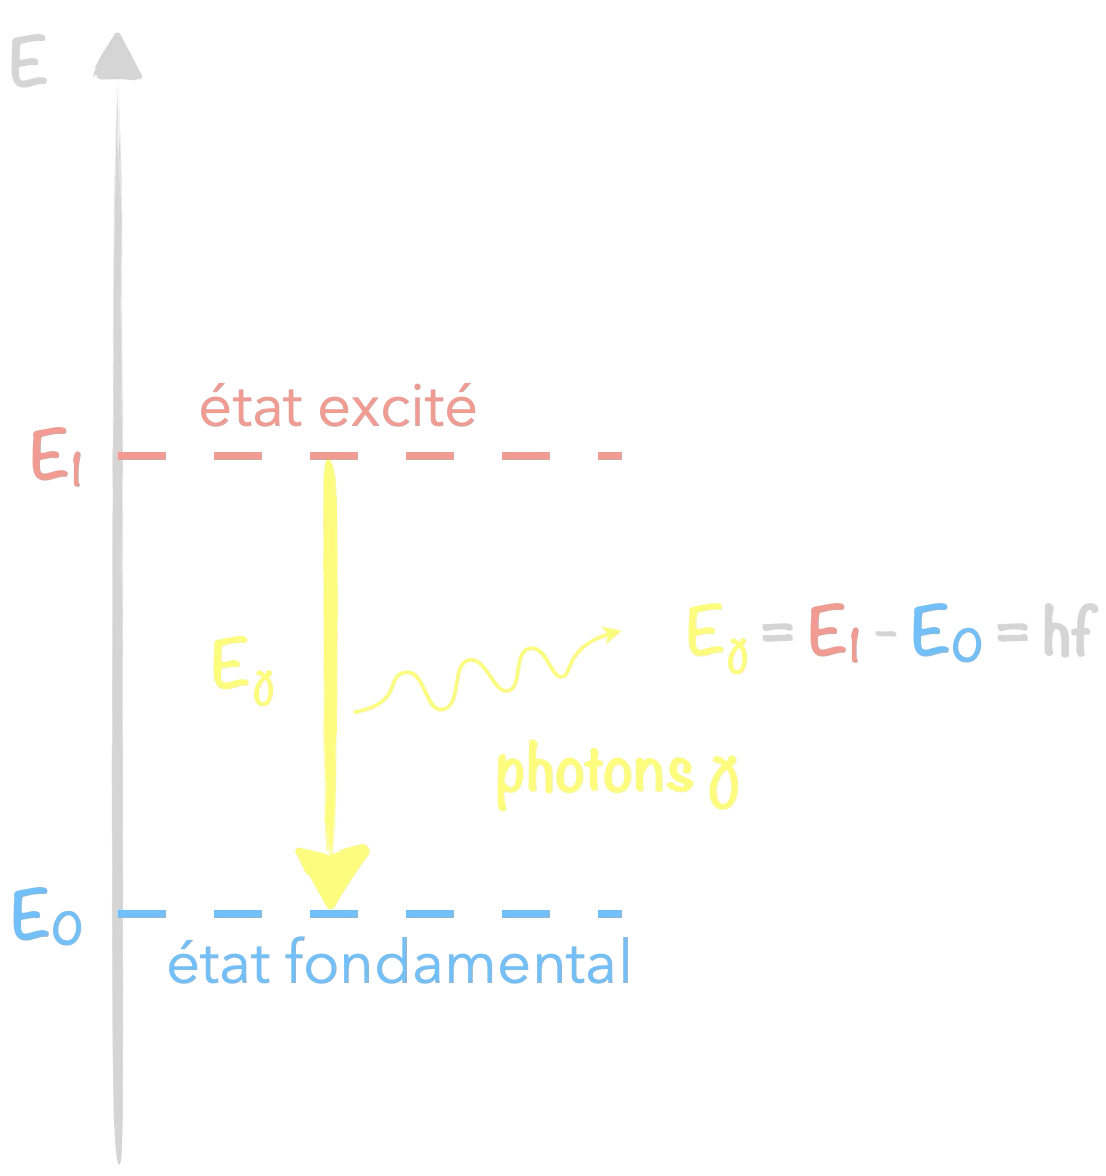 E
état excité
E₁
Eɣ = E₁ - E₀ = hf
Eɣ
photons ɣ
E₀
état fondamental